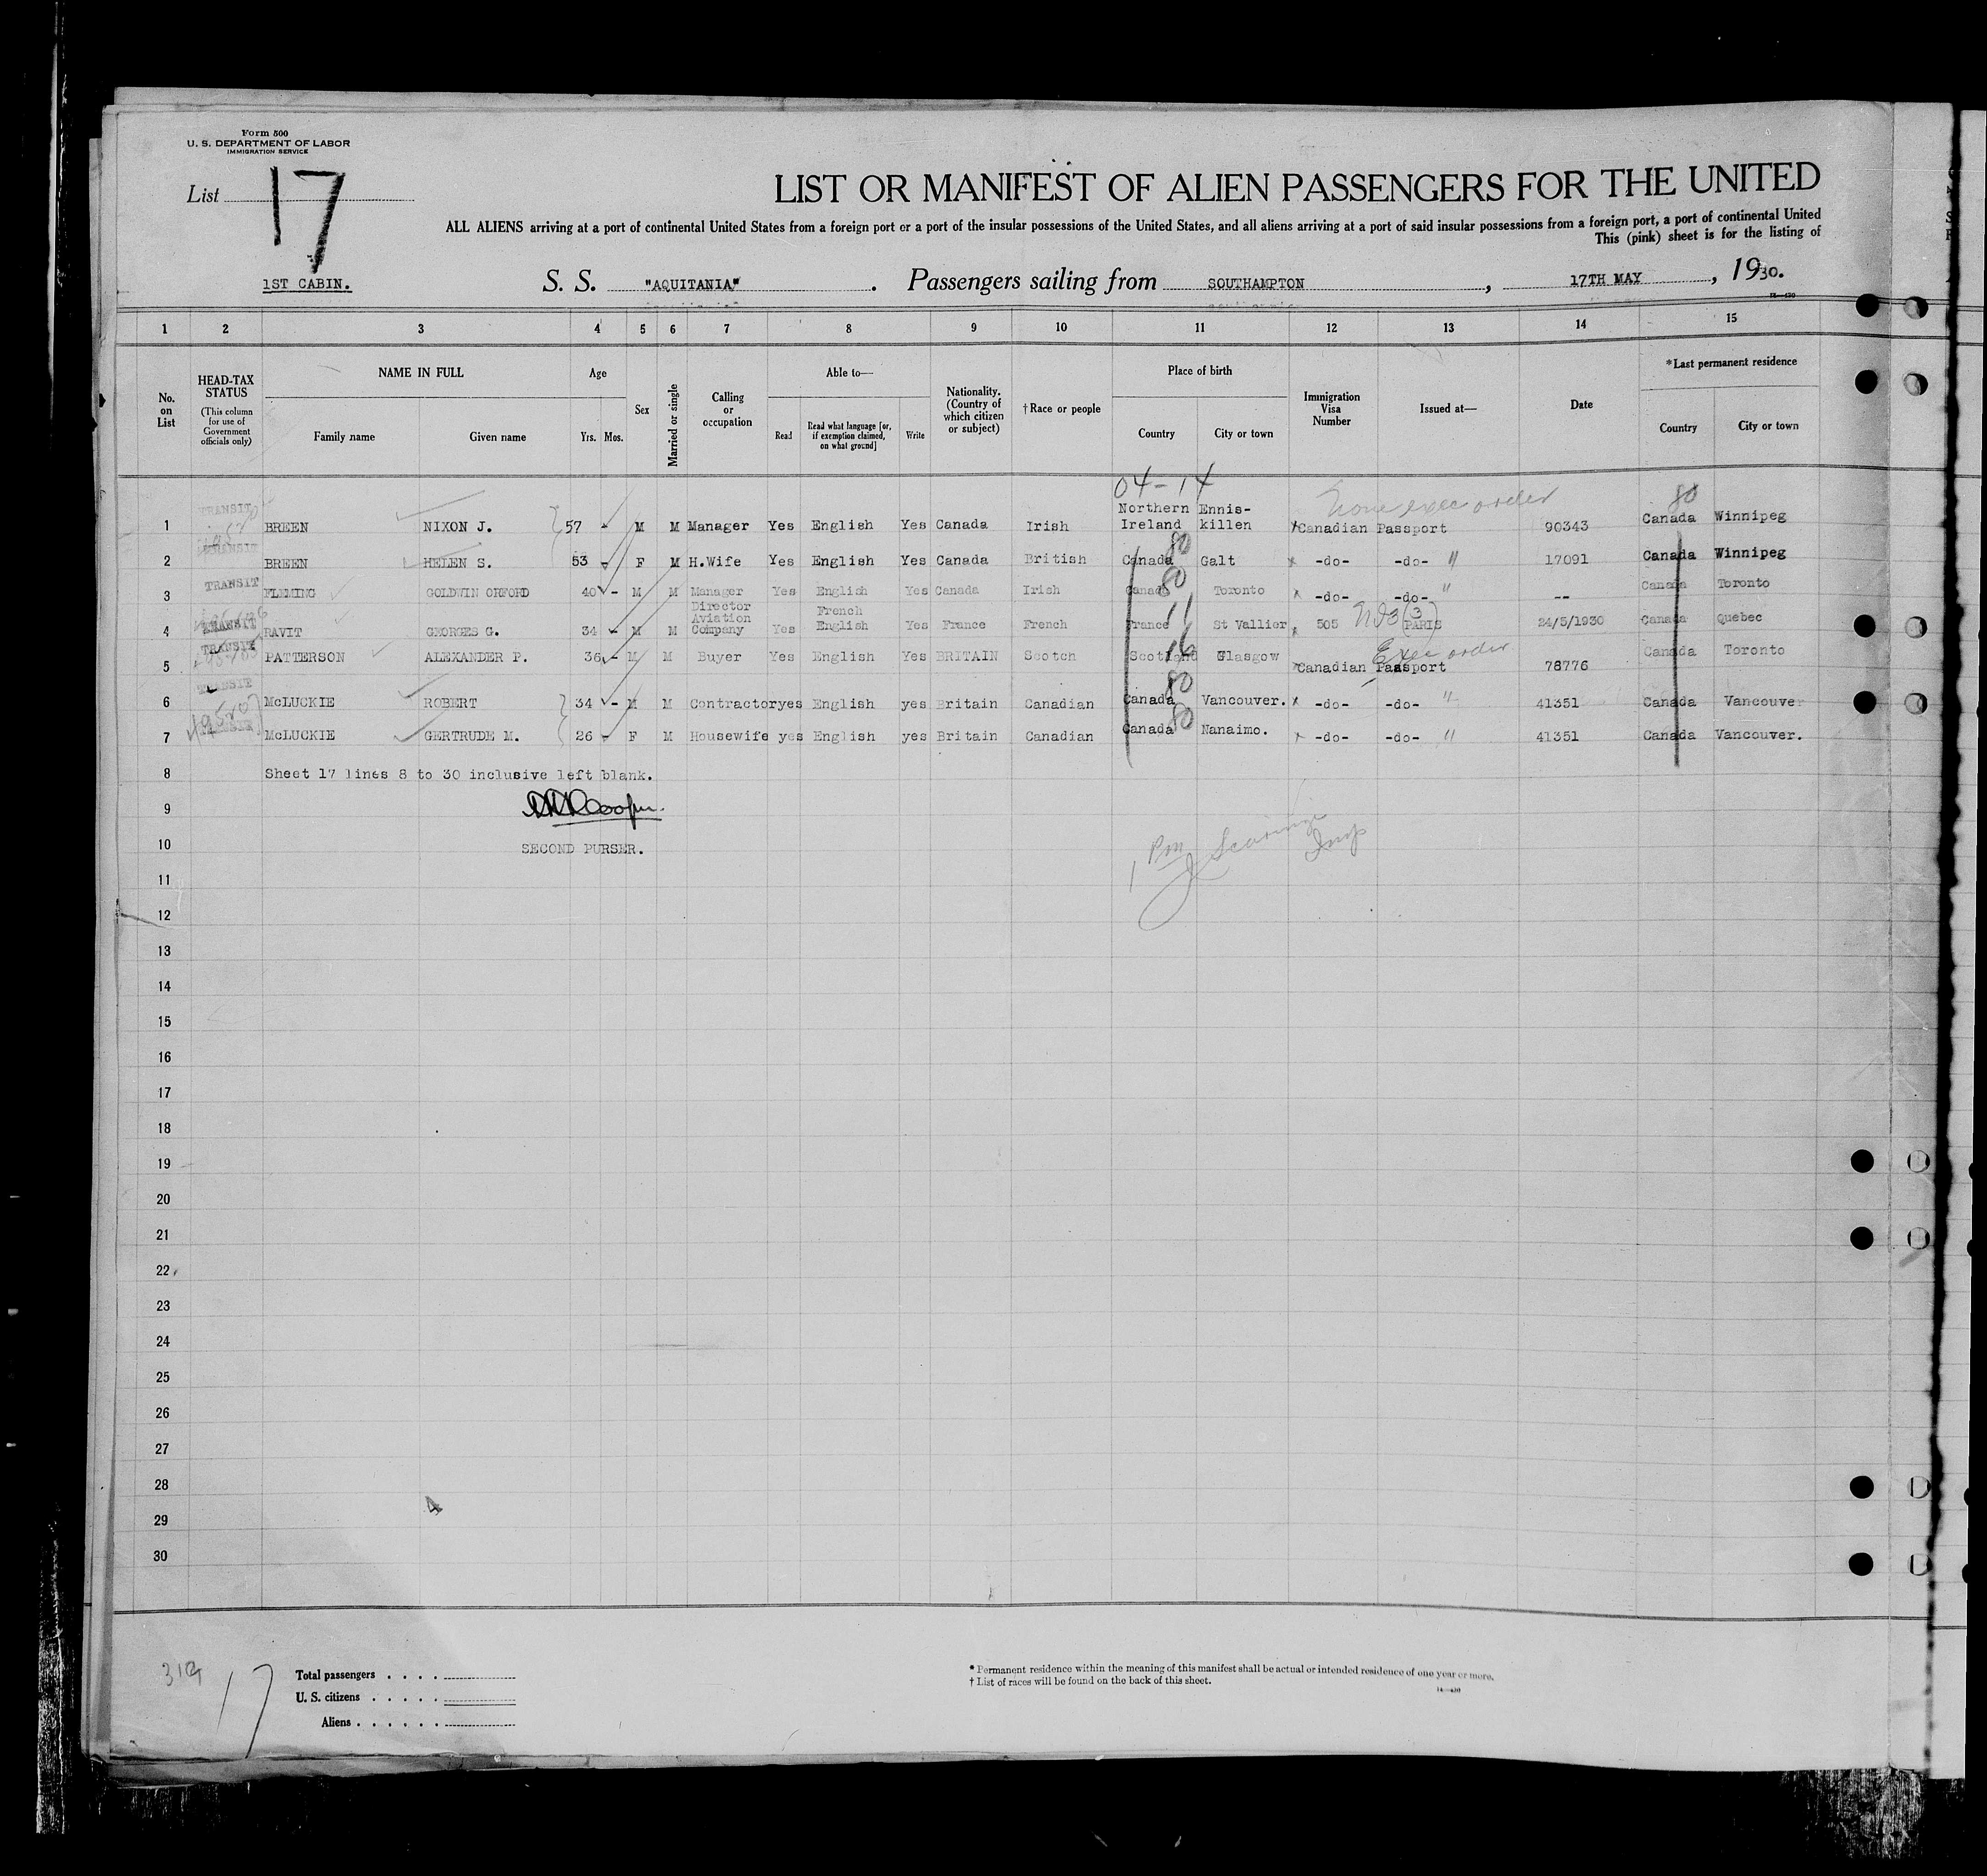 Form 500
U. S. DEPARTMENT OF LABOR
IMMIGRATION SERVICE
List 17
LIST OR MANIFEST OF ALIEN PASSENGERS FOR THE UNITED
ALL ALIENS arriving at a port of continental United States from a foreign port or a port of the insular possessions of the United States, and all aliens arriving at a port of said insular possessions from a foreign port, a port of continental United
This (pink) sheet is for the listing of
1ST CABIN. S. S. "AQUITANIA". Passengers sailing from SOUTHAMPTON, 17TH MAY, 1930.
1 2 3 4 5 6 7 8 9 10 11 12 13 14 15
No. on List
HEAD-TAX STATUS
(This column for use of Government officials only)
NAME IN FULL
Family name Given name
Age
Yrs. Mos.
Sex
Married or single
Calling or occupation
Able to—
Read
Read what language [or, if exemption claimed, on what ground]
Write
Nationality. (Country of which citizen or subject)
†Race or people
Place of birth
Country City or town
Immigration Visa Number
Issued at—
Date
*Last permanent residence
Country City or town
04-14
None exec order 80
1 TRANSIT BREEN NIXON J. 57 - M M Manager Yes English Yes Canada Irish Northern Ireland Enniskillen Canadian Passport 90343 Canada Winnipeg
80
2 TRANSIT BREEN HELEN S. 53 F M H.Wife Yes English Yes Canada British Canada Galt -do- -do- " 17091 Canada Winnipeg
80
3 TRANSIT FLEMING GOLDWIN ORFORD 40 - M M Manager Yes English Yes Canada Irish Canada Toronto -do- -do- " -- Canada Toronto
11
4 TRANSIT RAVIT GEORGES G. 34 - M M Director Aviation Company Yes French English Yes France French France St Vallier 505 PARIS 24/5/1930 Canada Quebec
16 Exec order
5 TRANSIT PATTERSON ALEXANDER P. 36 - M M Buyer Yes English Yes BRITAIN Scotch Scotland Glasgow Canadian Passport 78776 Canada Toronto
80
6 TRANSIT McLUCKIE ROBERT 34 - M M Contractor yes English yes Britain Canadian Canada Vancouver. -do- -do- " 41351 Canada Vancouver
80
7 McLUCKIE GERTRUDE M. 26 - F M Housewife yes English yes Britain Canadian Canada Nanaimo. -do- -do- " 41351 Canada Vancouver.
8 Sheet 17 lines 8 to 30 inclusive left blank.
9
10 SECOND PURSER.
11
12
13
14
15
16
17
18
19
20
21
22
23
24
25
26
27
28
29
30
17
Total passengers
U. S. citizens
Aliens
* Permanent residence within the meaning of this manifest shall be actual or intended residence of one year or more.
† List of races will be found on the back of this sheet.